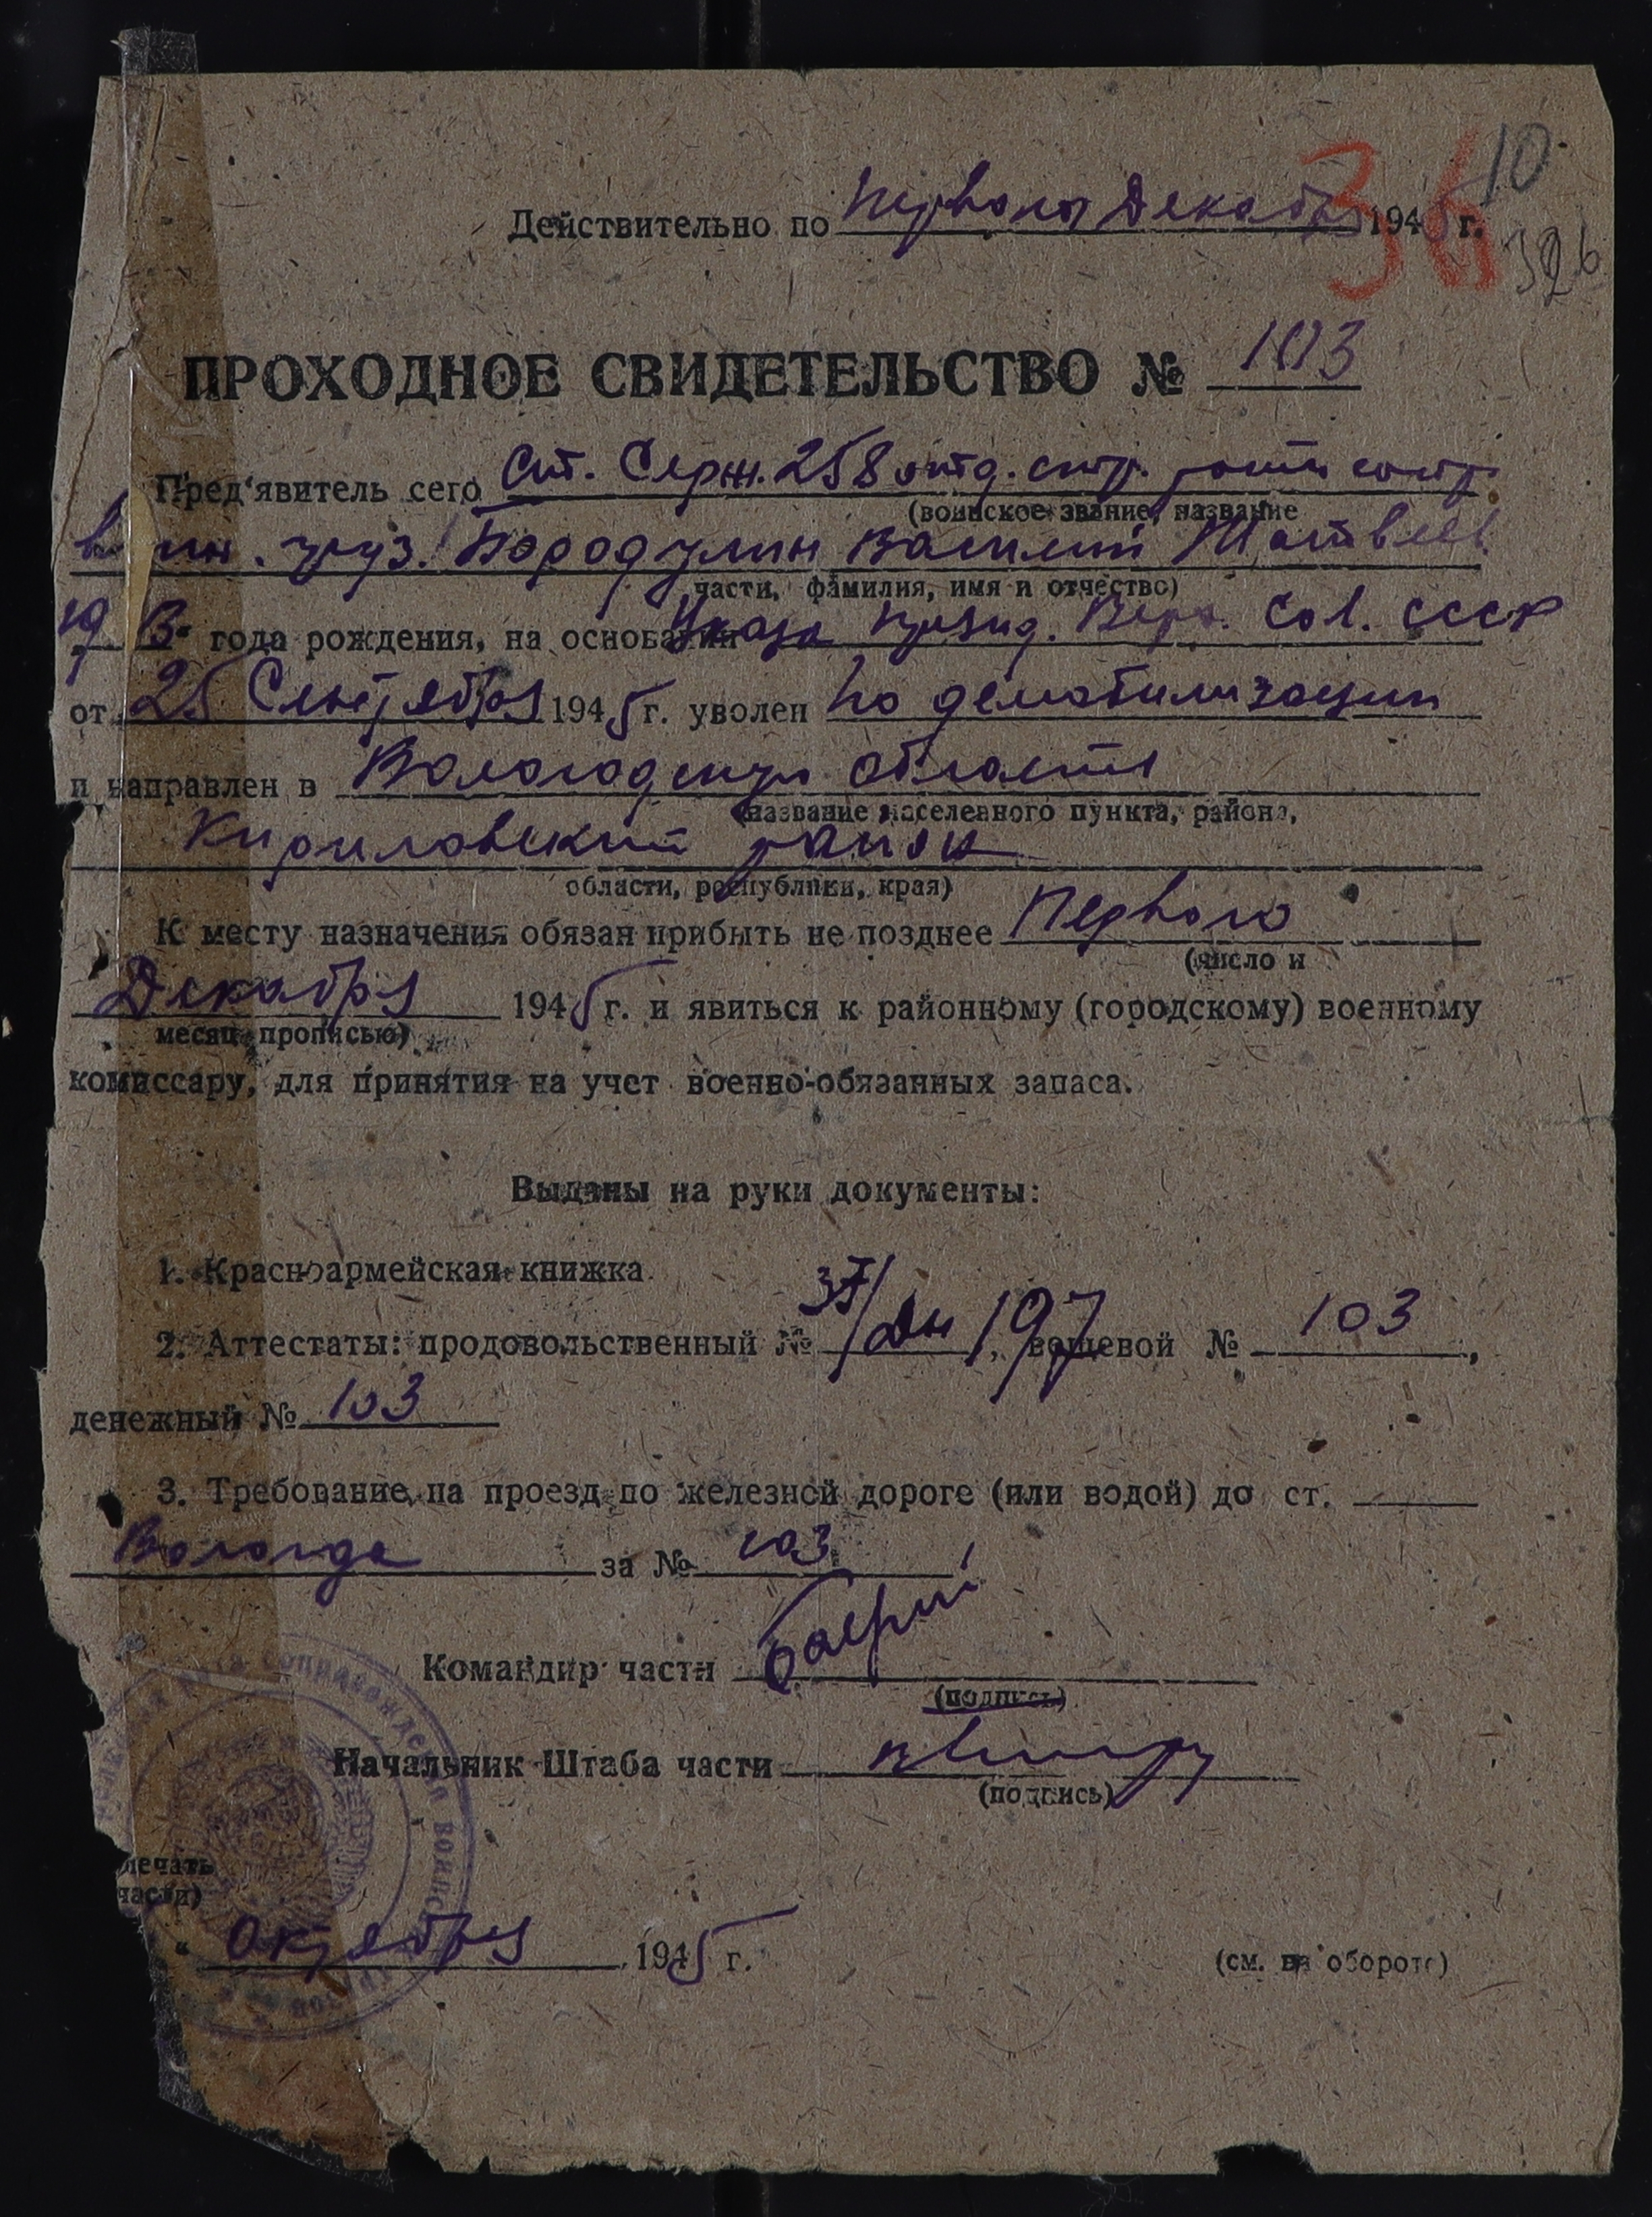 10
36
326
Действительно по Первого Декабря 1945 г.
ПРОХОДНОЕ СВИДЕТЕЛЬСТВО № 103
Пред'явитель сего Ст. Серж. 258 отд. стр. роты сопр.
(воинское звание, название
в ин. груз. Бородулин Василий Матвеев.
части, фамилия, имя и отчество)
19 13 года рождения, на основании Указа Презид. Верх. Сов. СССР
от 25 Сентября 1945 г. уволен по демобилизации
и направлен в Вологодскую область
(название населенного пункта, района,
Кириловский район
области, республики, края)
К месту назначения обязан прибыть не позднее Первого
(число и
Декабря 1945 г. и явиться к районному (городскому) военному
месяц прописью)
комиссару, для принятия на учет военно-обязанных запаса.
Выданы на руки документы:
1. Красноармейская книжка
2. Аттестаты: продовольственный № 197, вещевой № 103,
денежный № 103
3. Требование на проезд по железной дороге (или водой) до ст.
Вологда за № 103
Командир части
(подпись)
Начальник Штаба части
(подпись)
печать
части)
“ Октября 1945 г.
(см. на обороте)